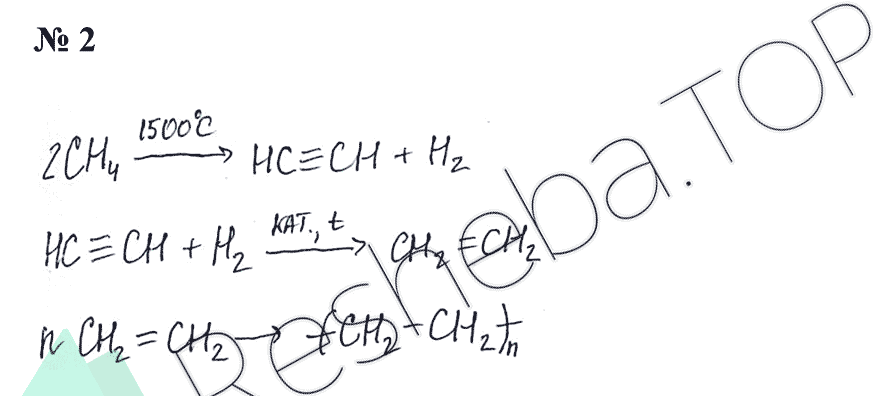 № 2
2CH₄ —1500°C→ HC≡CH + H₂
HC≡CH + H₂ —КАТ., t→ CH₂=CH₂
n CH₂=CH₂ → (CH₂-CH₂)ₙ
Resheba.TOP